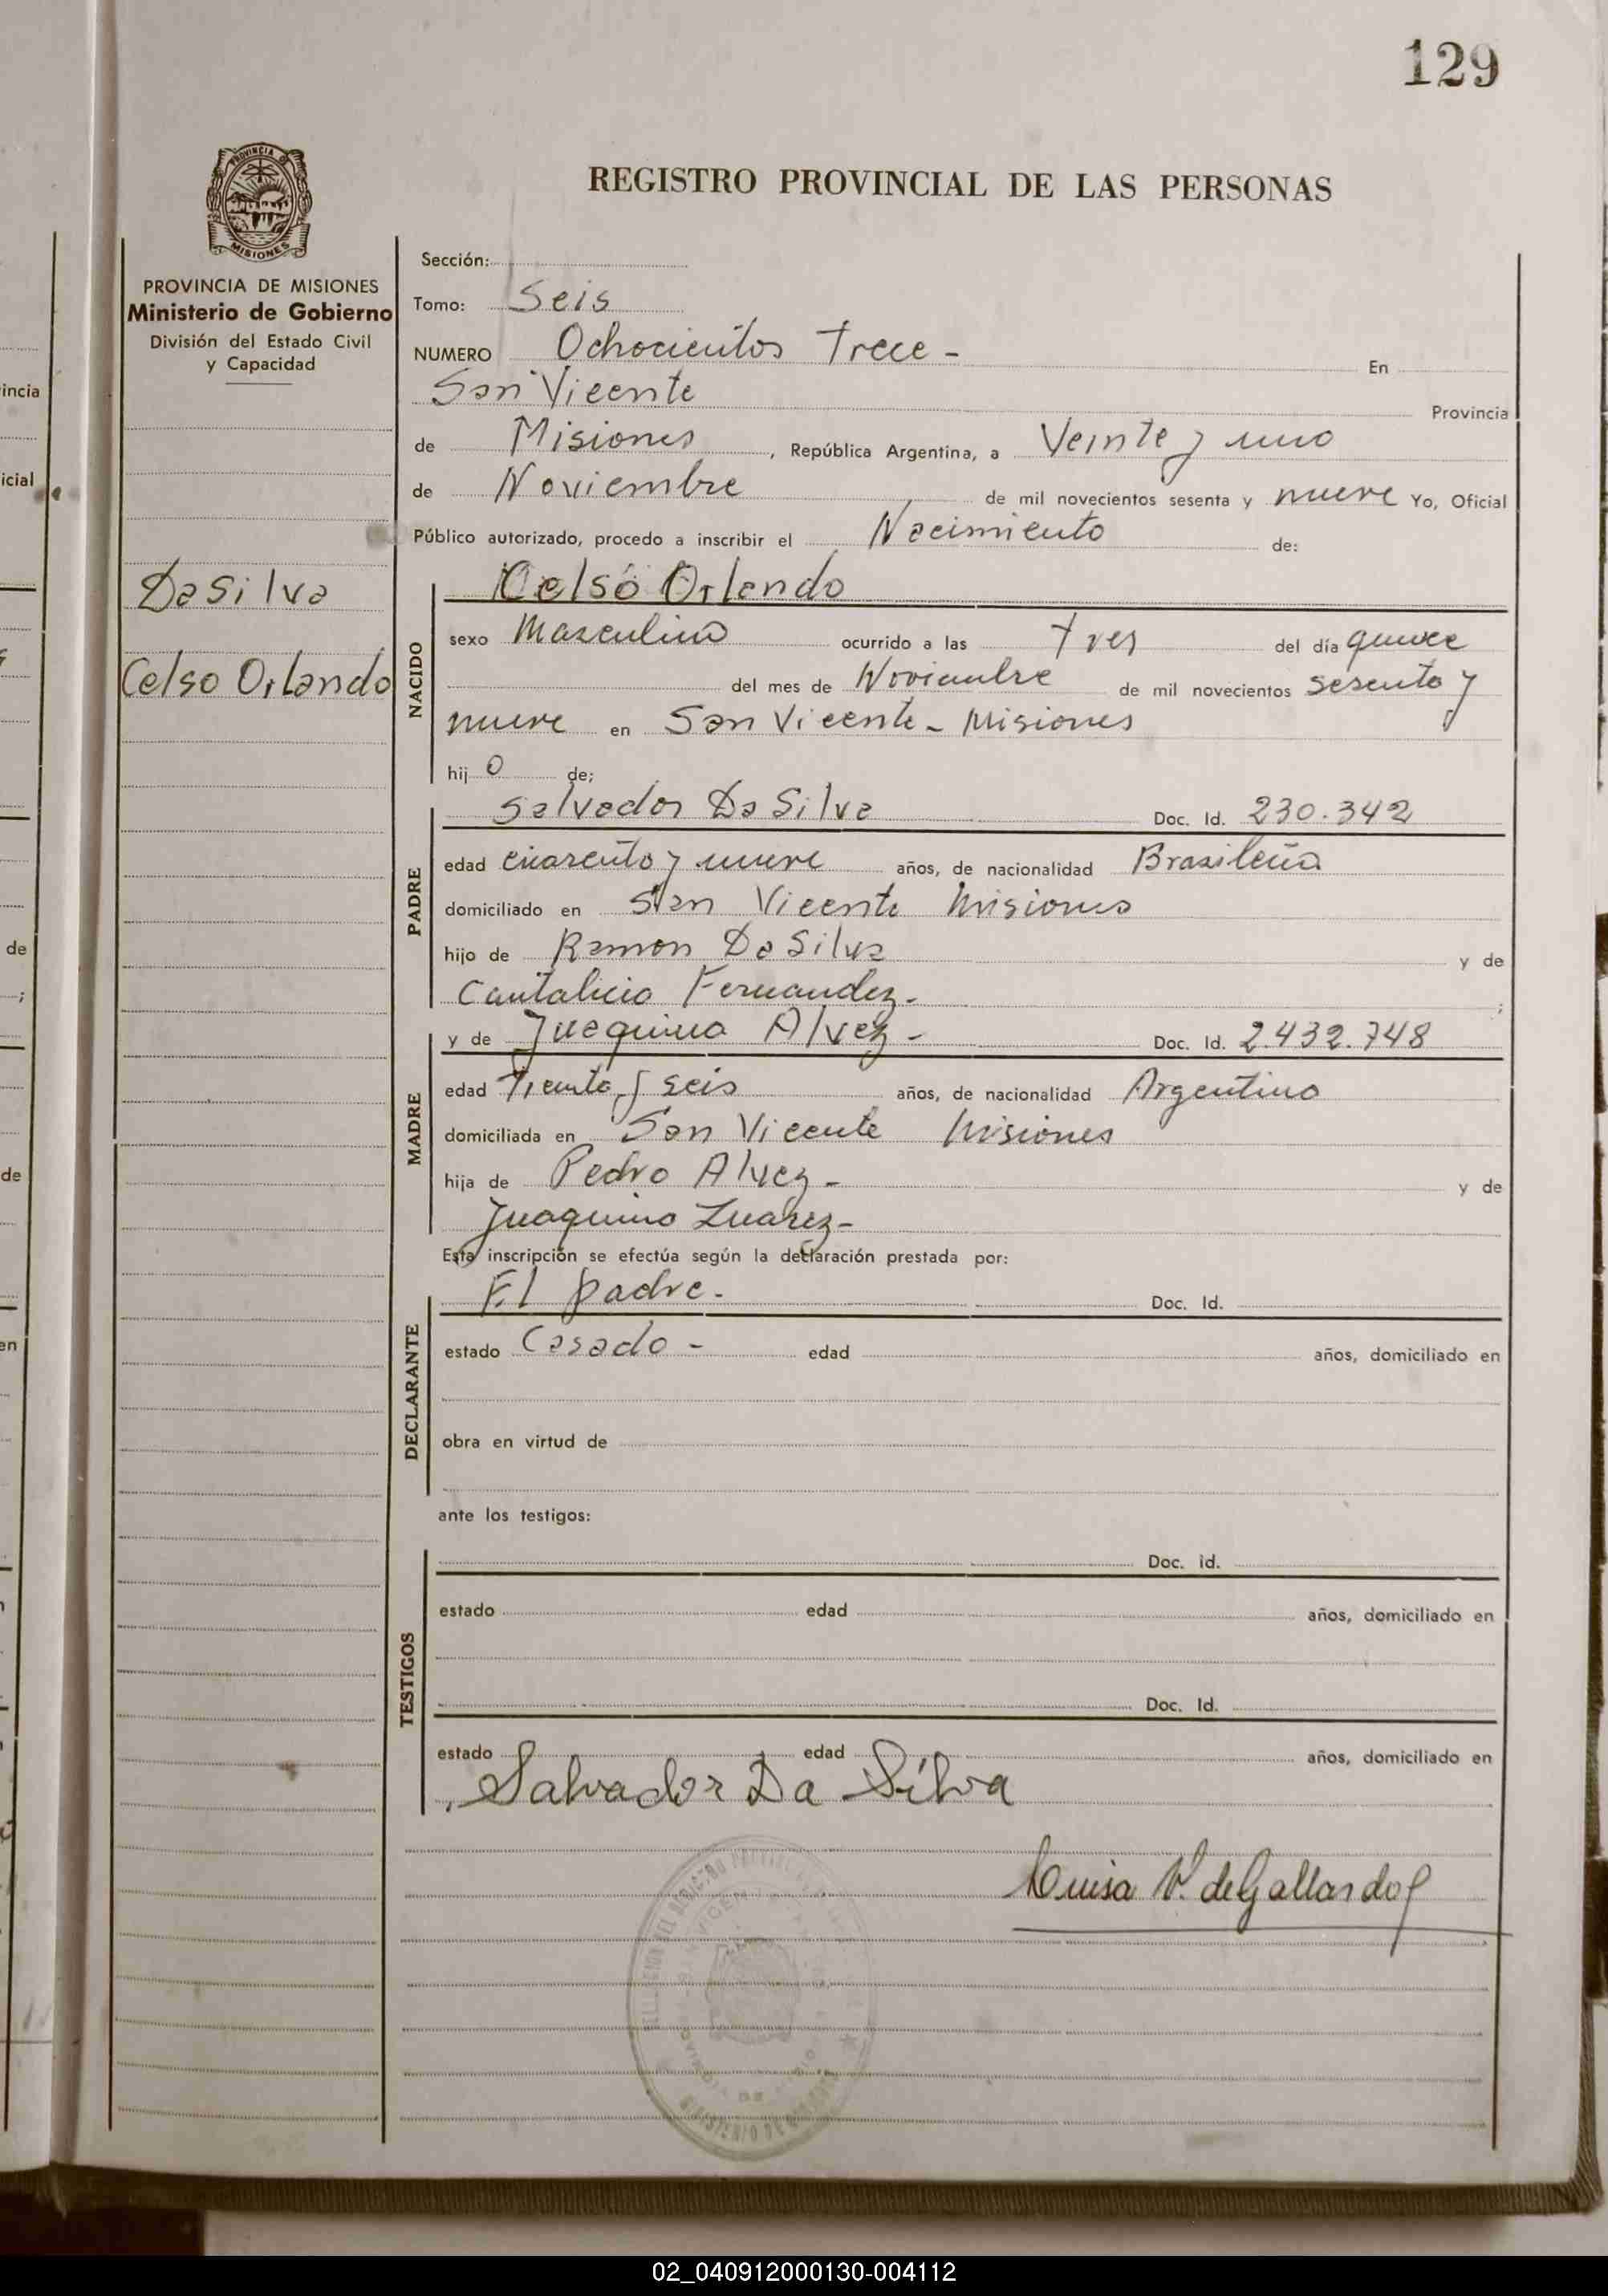 129
PROVINCIA DE
MISIONES
REGISTRO PROVINCIAL DE LAS PERSONAS
PROVINCIA DE MISIONES
Ministerio de Gobierno
División del Estado Civil
y Capacidad
Da Silva
Celso Orlando
Sección:
Tomo: Seis
NUMERO Ochocientos Trece - En
San Vicente Provincia
de Misiones, República Argentina, a Veinte y uno
de Noviembre de mil novecientos sesenta y nueve Yo, Oficial
Público autorizado, procedo a inscribir el Nacimiento de:
NACIDO
Celso Orlando
sexo Masculino ocurrido a las tres del día quince
del mes de Noviembre de mil novecientos sesenta y
nueve en San Vicente - Misiones
hij o de;
PADRE
Salvador Da Silva Doc. Id. 230.342
edad cuarenta y nueve años, de nacionalidad Brasileña
domiciliado en San Vicente Misiones
hijo de Ramon Da Silva y de
Cantalicia Fernandez- ;
MADRE
y de Juaquina Alvez - Doc. Id. 2.432.748
edad Treinta y seis años, de nacionalidad Argentina
domiciliada en San Vicente Misiones
hija de Pedro Alvez - y de
Juaquina Luarez-
Esta inscripción se efectúa según la declaración prestada por:
DECLARANTE
El padre. Doc. Id.
estado Casado - edad años, domiciliado en
obra en virtud de
ante los testigos:
TESTIGOS
Doc. Id.
estado edad años, domiciliado en
Doc. Id.
estado edad años, domiciliado en
Salvador Da Silva
Luisa V. de Gallardo
incia
icial
de
de
en
02_040912000130-004112